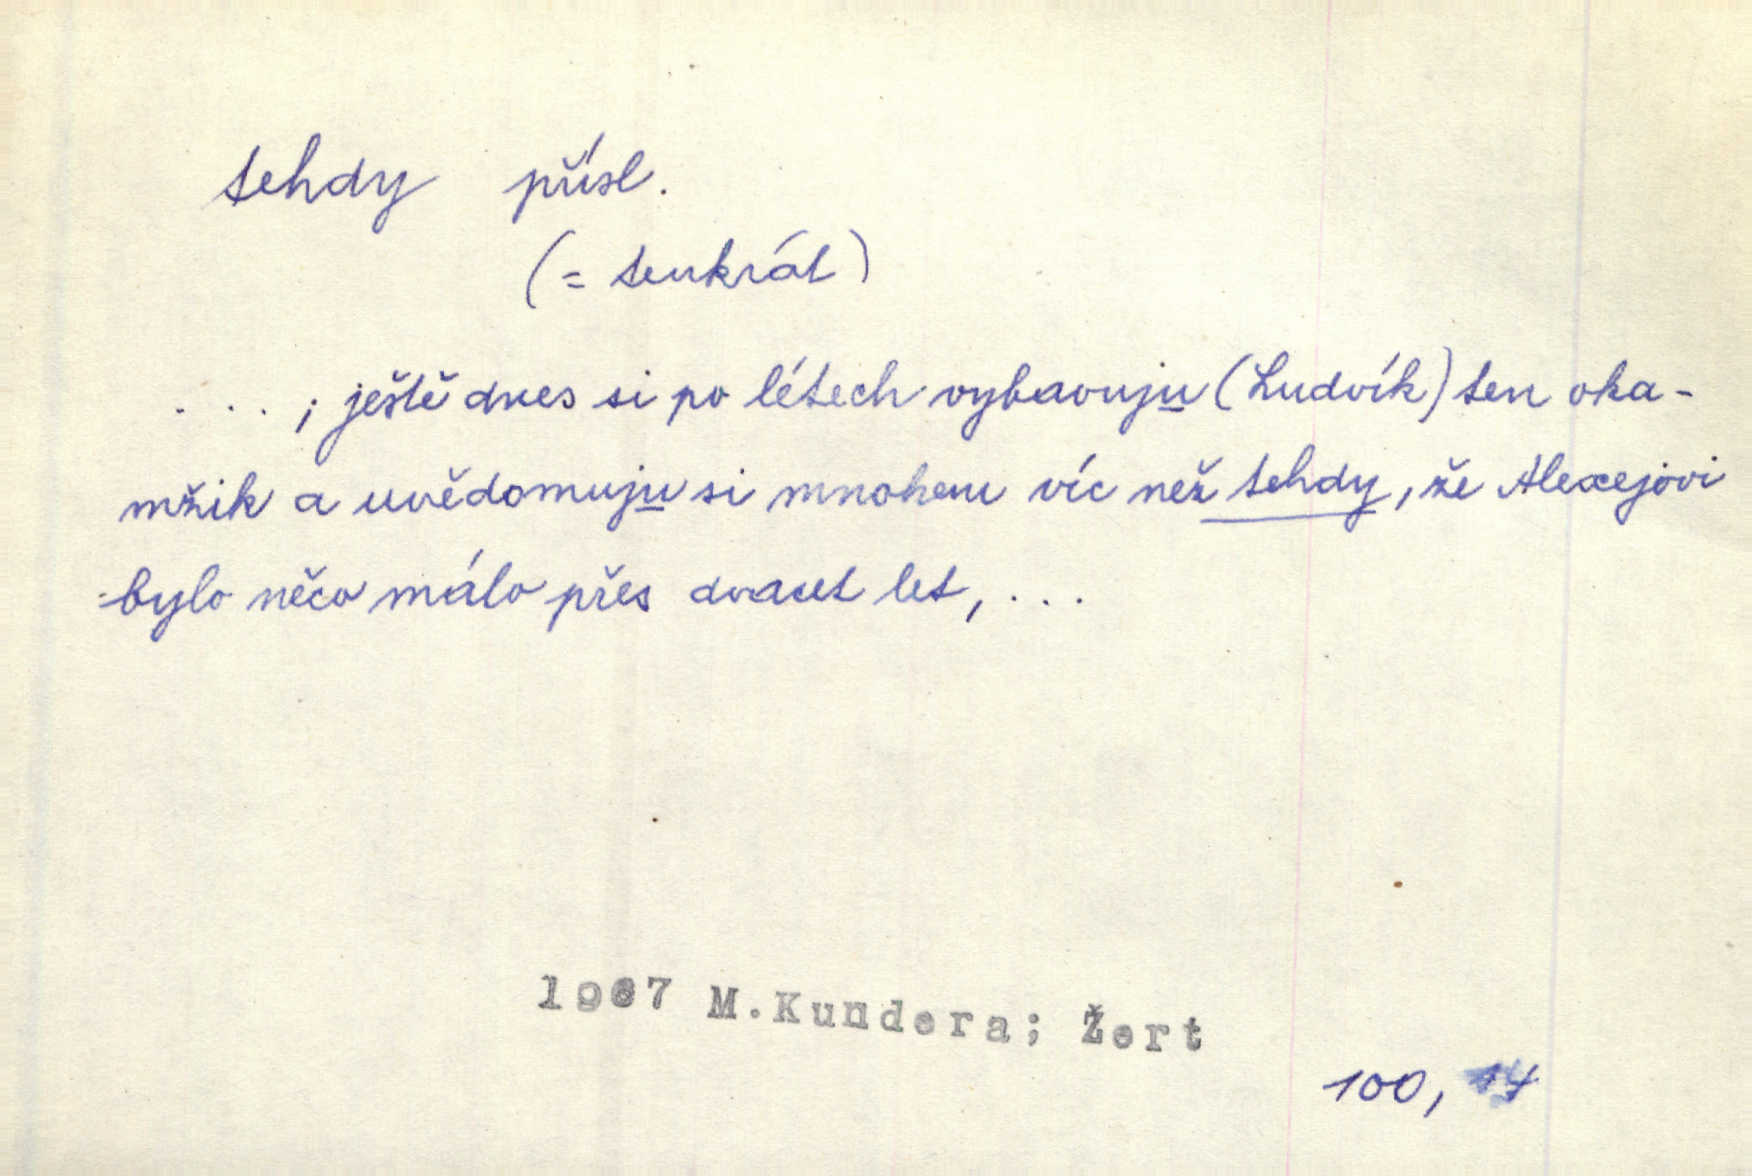 tehdy přísl.
(= tenkrát)
. . . ; ještě dnes si po létech vybavuju (Ludvík) ten oka-
mžik a uvědomuju si mnohem víc než tehdy, že Alexejovi
bylo něco málo přes dvacet let, . . .
1967 M.Kundera; Žert
100, 14